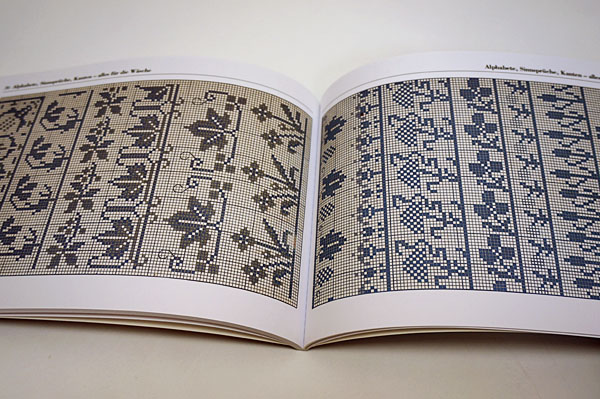 Alphabete, Sinnsprüche, Kanten – alles für die Wäsche
Alphabete, Sinnsprüche, Kanten – alles